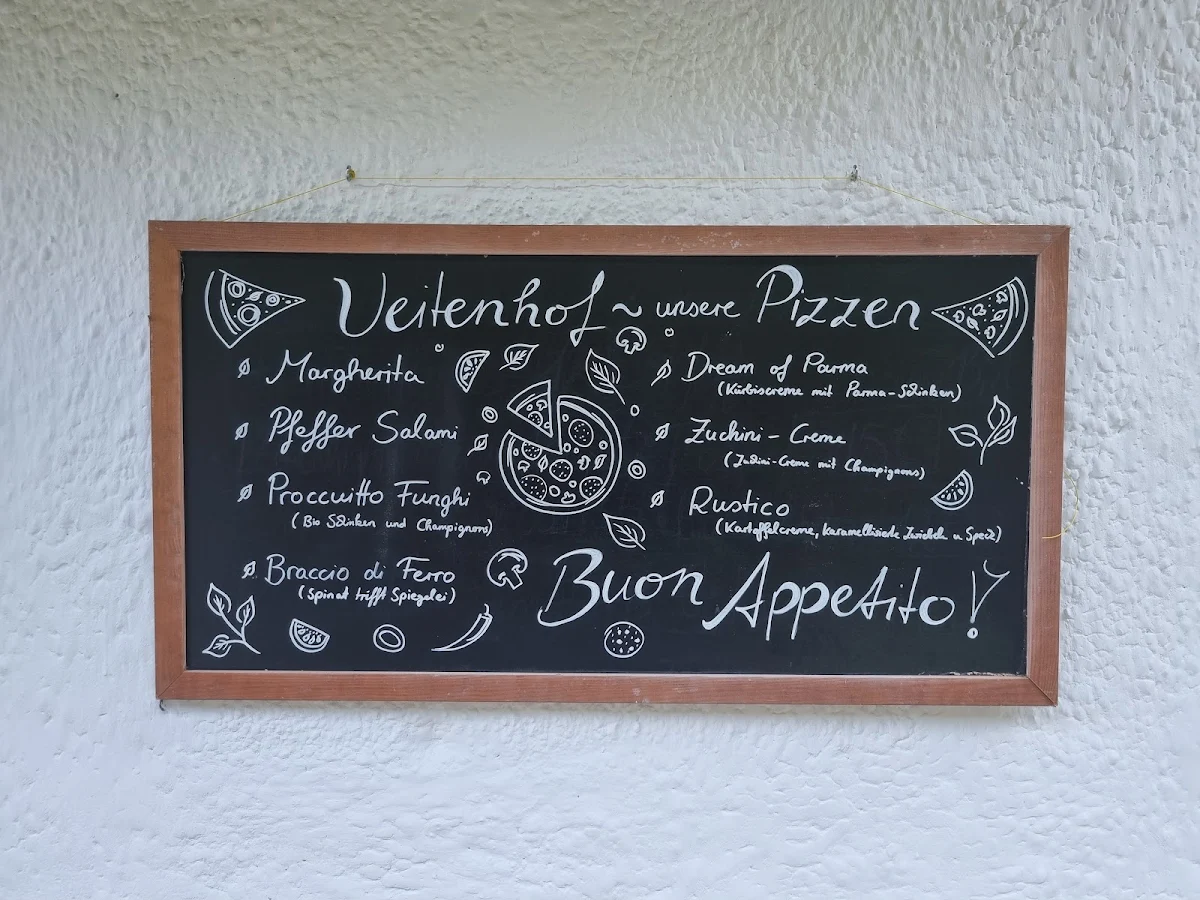 Veitenhof ~ unsere Pizzen
Margherita
Pfeffer Salami
Proccuitto Funghi
(Bio Schinken und Champignons)
Braccio di Ferro
(Spinat trifft Spiegelei)
Dream of Parma
(Kürbiscreme mit Parma-Schinken)
Zuchini - Creme
(Zuchini-Creme mit Champignons)
Rustico
(Kartoffelcreme, karamellisierte Zwiebeln u. Speck)
Buon Appetito!